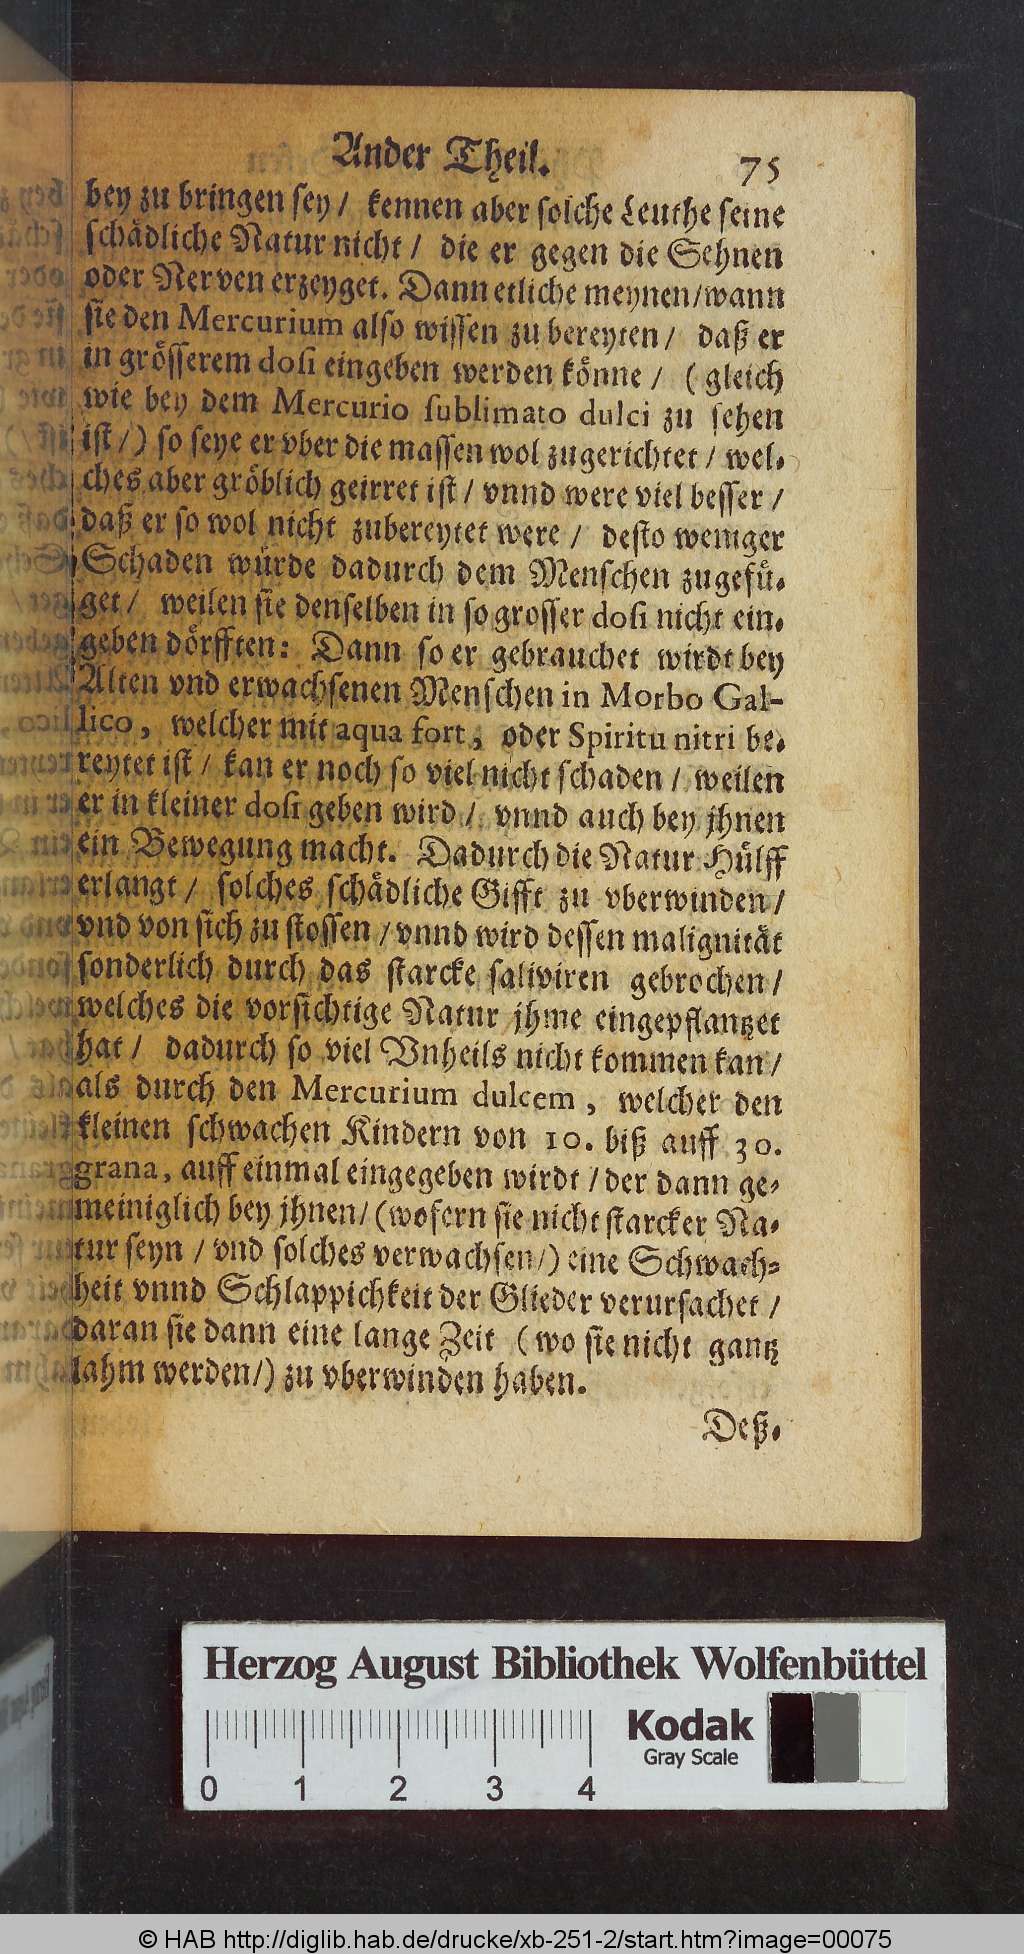 Ander Theil. 75
bey zu bringen sey / kennen aber solche Leuthe seine
schädliche Natur nicht / die er gegen die Sehnen
oder Nerven erzeyget. Dann etliche meynen / wann
sie den Mercurium also wissen zu bereyten / daß er
in grösserem dosi eingeben werden könne / ( gleich
wie bey dem Mercurio sublimato dulci zu sehen
ist / ) so seye er vber die massen wol zugerichtet / wel-
ches aber gröblich geirret ist / vnnd were viel besser /
daß er so wol nicht zubereytet were / desto weniger
Schaden würde dadurch dem Menschen zugefü-
get / weilen sie denselben in so grosser dosi nicht ein-
geben dörfften: Dann so er gebrauchet wirdt bey
Alten vnd erwachsenen Menschen in Morbo Gal-
lico, welcher mit aqua fort, oder Spiritu nitri be-
reytet ist / kan er noch so viel nicht schaden / weilen
er in kleiner dosi geben wird / vnnd auch bey jhnen
ein Bewegung macht. Dadurch die Natur Hülff
erlangt / solches schädliche Gifft zu vberwinden /
vnd von sich zu stossen / vnnd wird dessen malignität
sonderlich durch das starcke saliviren gebrochen /
welches die vorsichtige Natur jhme eingepflantzet
hat / dadurch so viel Vnheils nicht kommen kan /
als durch den Mercurium dulcem, welcher den
kleinen schwachen Kindern von 10. biß auff 30.
grana, auff einmal eingegeben wirdt / der dann ge-
meiniglich bey jhnen / (wofern sie nicht starcker Na-
tur seyn / vnd solches verwachsen / ) eine Schwach-
heit vnnd Schlappichkeit der Glieder verursachet /
daran sie dann eine lange Zeit ( wo sie nicht gantz
lahm werden / ) zu vberwinden haben.
Deß-
Herzog August Bibliothek Wolfenbüttel
Kodak
Gray Scale
0 1 2 3 4
© HAB http://diglib.hab.de/drucke/xb-251-2/start.htm?image=00075